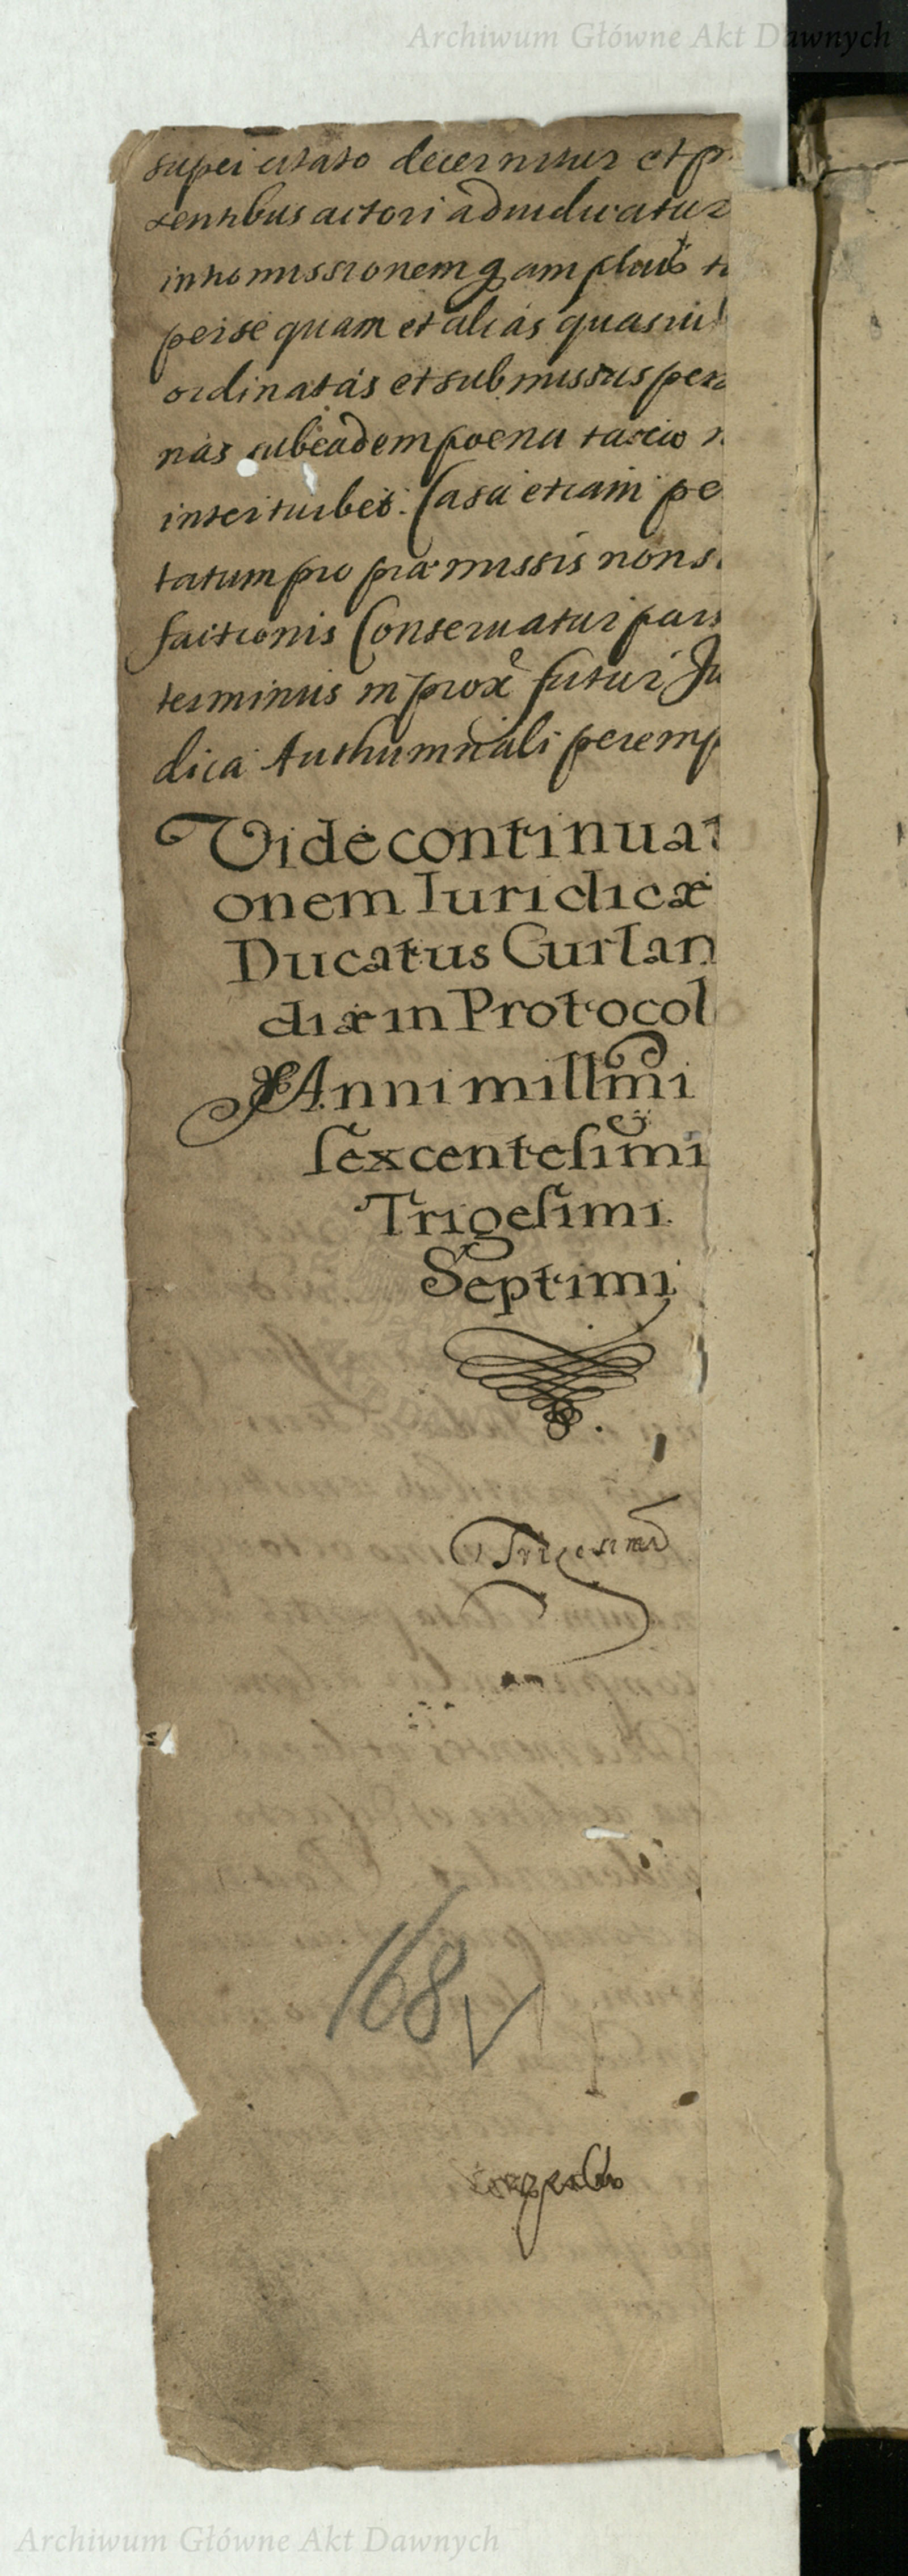 Archiwum Główne Akt Dawnych
super citato decernitur et p
sentibus actori adiudicatur
in homissionem q amplius
perse quam et alias quasvis
ordinatas et submissus per
nas sub eadem poena
interturbet. Casu etiam pe
tatum pro præmissis non s
factionis Conservatur pars
terminus in prox futur Ju
dica Authumnali peremp
Vide continuat
onem Iuridicæ
Ducatus Curlan
diæ in Protocol
Anni millmi
sexcentesimi
Trigesimi
Septimi
Trigesimo
168v
Archiwum Główne Akt Dawnych